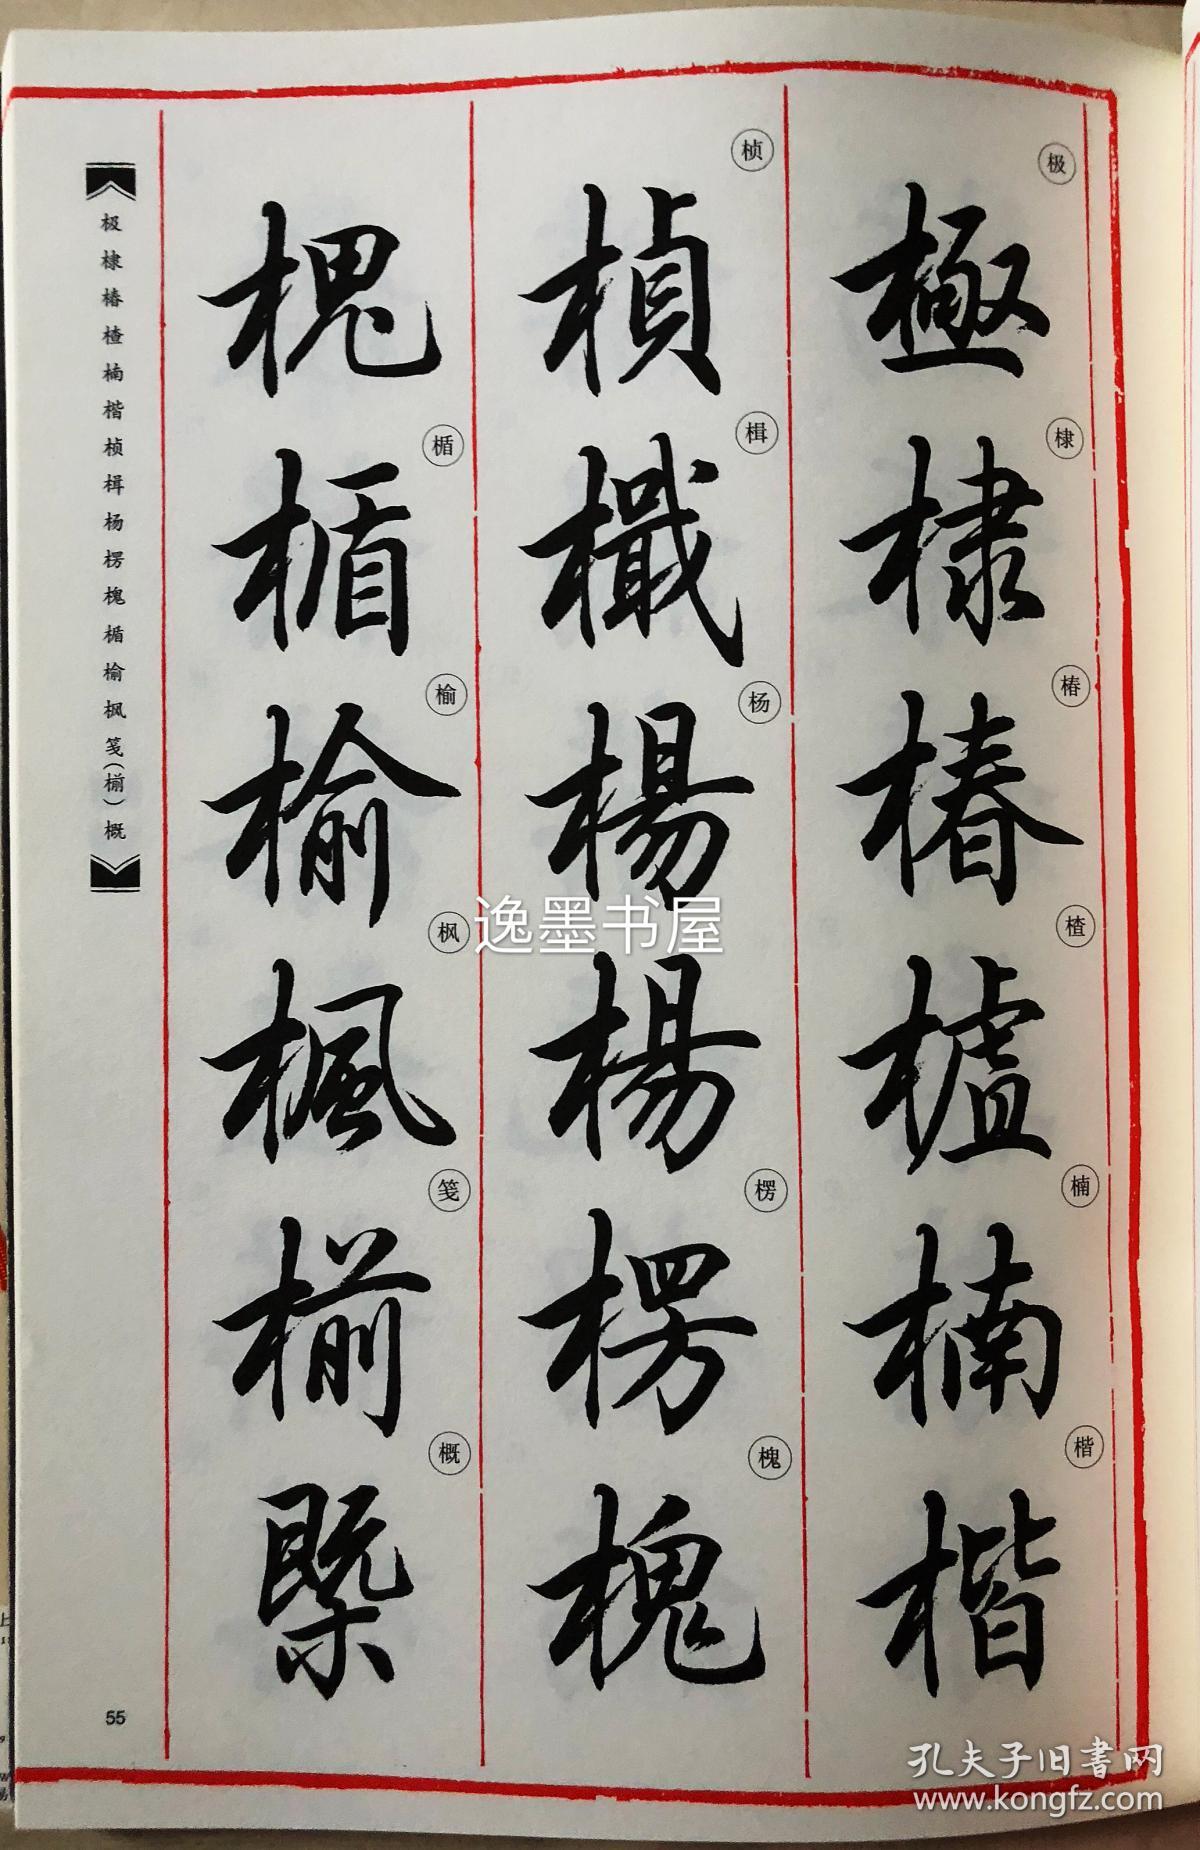 极
極
棣
棣
椿
椿
楂
樝
楠
楠
楷
楷
桢
楨
楫
杨
楊
楊
楞
楞
槐
槐
槐
楯
楯
榆
榆
枫
楓
笺
椾
概
槩
极棣椿楂楠楷桢楫杨楞槐楯榆枫笺(椾)概
55
逸墨书屋
孔夫子旧书网
www.kongfz.com